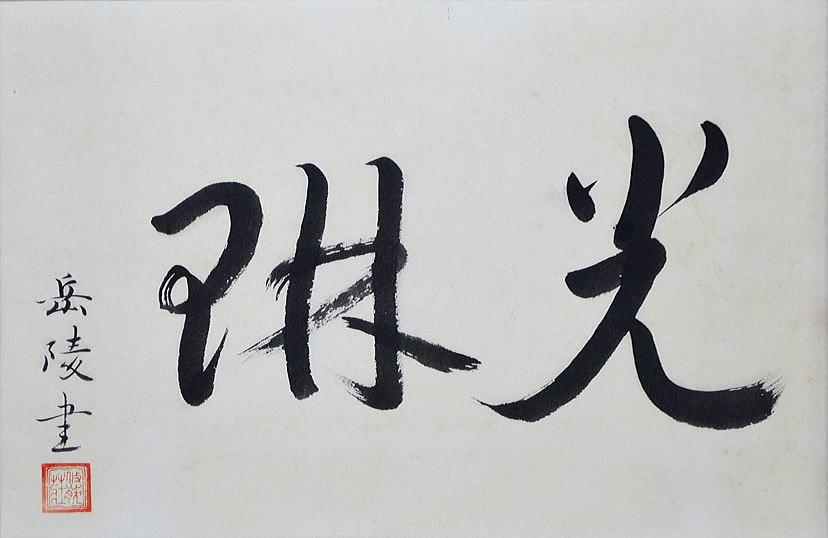 光琳
岳陵書